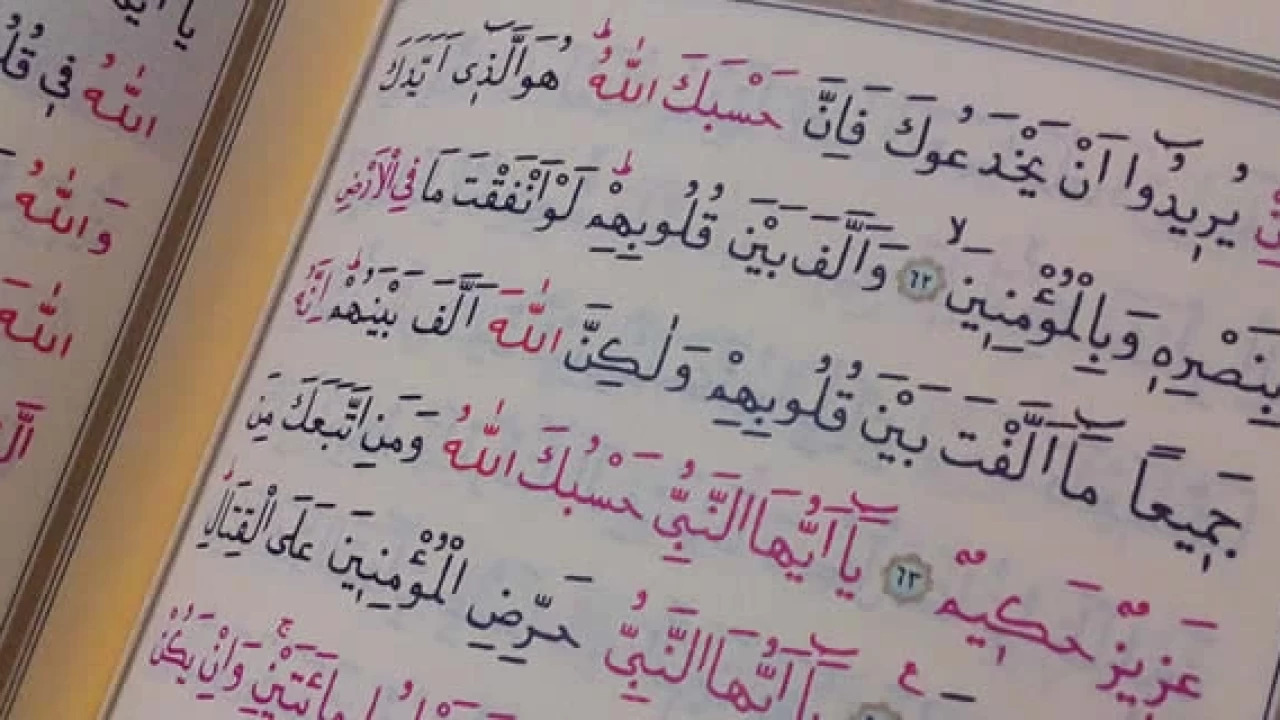 يُرِيدُوا اَنْ يَخْدَعُوكَ فَاِنَّ حَسْبَكَ اللّٰهُؕ هُوَ الَّذٖٓي اَيَّدَكَ
بِنَصْرِهٖ وَبِالْمُؤْمِنٖينَۙ ٦٢ وَاَلَّفَ بَيْنَ قُلُوبِهِمْؕ لَوْ اَنْفَقْتَ مَا فِي الْاَرْضِ
جَمٖيعاً مَٓا اَلَّفْتَ بَيْنَ قُلُوبِهِمْ وَلٰكِنَّ اللّٰهَ اَلَّفَ بَيْنَهُمْؕ اِنَّهُ
عَزٖيزٌ حَكٖيمٌ ٦٣ يَٓا اَيُّهَا النَّبِيُّ حَسْبُكَ اللّٰهُ وَمَنِ اتَّبَعَكَ مِنَ
يَٓا اَيُّهَا النَّبِيُّ حَرِّضِ الْمُؤْمِنٖينَ عَلَى الْقِتَالِؕ
مِائَتَيْنِۚ وَاِنْ يَكُنْ
اللّٰهُ فٖي
وَاللّٰهُ
اللّٰهَ